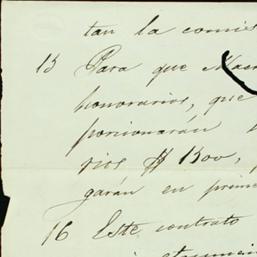 tan la comis
13 Para que Mas
honorarios, que
porcionarán
rios $1500,
garan en prim
16 Este contrato